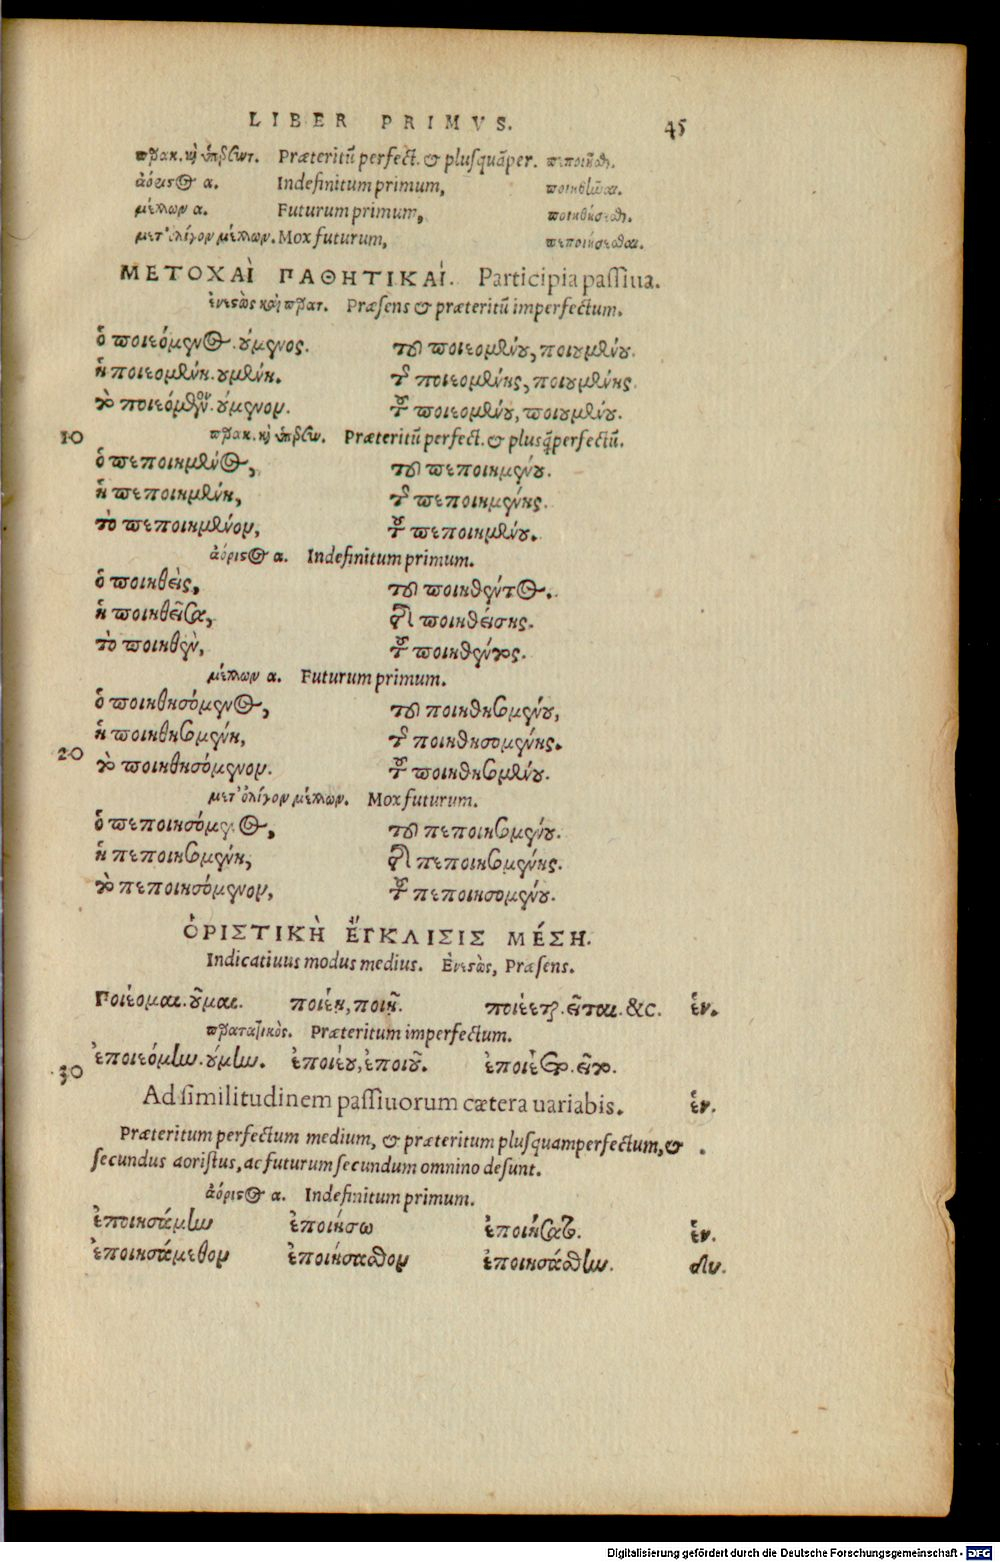 LIBER PRIMVS. 45
πρακ. κὶ ὑπερσωντ. Præteritũ perfect. & plusquãper. πεποιῆσθαι.
ἀόριστος α. Indefinitum primum, ποιηθῆναι.
μέλλων α. Futurum primum, ποιηθήσεσθαι.
μετ᾽ ὀλίγον μέλλων. Mox futurum, πεποιήσεσθαι.
ΜΕΤΟΧΑῚ ΠΑΘΗΤΙΚΑΊ. Participia passiua.
ἐνεστὼς καὶ παρατ. Præsens & præteritũ imperfectum.
ὁ ποιεόμενος. ούμενος. τοῦ ποιεομένου, ποιουμένου.
ἡ ποιεομένη. ουμένη. τῆς ποιεομένης, ποιουμένης.
τὸ ποιεόμενον. ούμενον. τοῦ ποιεομένου, ποιουμένου.
10 παρακ. κὶ ὑπερσων. Præteritũ perfect. & plusq̃perfectũ.
ὁ πεποιημένος, τοῦ πεποιημένου.
ἡ πεποιημένη, τῆς πεποιημένης.
τὸ πεποιημένον, τοῦ πεποιημένου.
ἀόριστος α. Indefinitum primum.
ὁ ποιηθεὶς, τοῦ ποιηθέντος.
ἡ ποιηθεῖσα, τῆς ποιηθείσης.
τὸ ποιηθὲν, τοῦ ποιηθέντος.
μέλλων α. Futurum primum.
ὁ ποιηθησόμενος, τοῦ ποιηθησομένου,
ἡ ποιηθησομένη, τῆς ποιηθησομένης.
20 τὸ ποιηθησόμενον. τοῦ ποιηθησομένου.
μετ᾽ ὀλίγον μέλλων. Mox futurum.
ὁ πεποιησόμενος, τοῦ πεποιησομένου.
ἡ πεποιησομένη, τῆς πεποιησομένης.
τὸ πεποιησόμενον, τοῦ πεποιησομένου.
ὉΡΙΣΤΙΚῊ ἜΓΚΛΙΣΙΣ ΜΈΣΗ.
Indicatiuus modus medius. Ἐνεστὼς, Præsens.
Ποιέομαι. οῦμαι. ποιέῃ, ποιῇ. ποιέεται. εῖται. &c. ἑν.
παρατατικὸς. Præteritum imperfectum.
ἐποιεόμην. ούμην. ἐποιέου, ἐποιοῦ. ἐποιέετο. εῖτο.
30 Ad similitudinem passiuorum cætera uariabis. ἑν.
Præteritum perfectum medium, & præteritum plusquamperfectum, &
secundus aoristus, ac futurum secundum omnino desunt.
ἀόριστος α. Indefinitum primum.
ἐποιησάμην ἐποιήσω ἐποιήσατο. ἑν.
ἐποιησάμεθον ἐποιήσασθον ἐποιησάσθην. δυ.
Digitalisierung gefördert durch die Deutsche Forschungsgemeinschaft - DFG